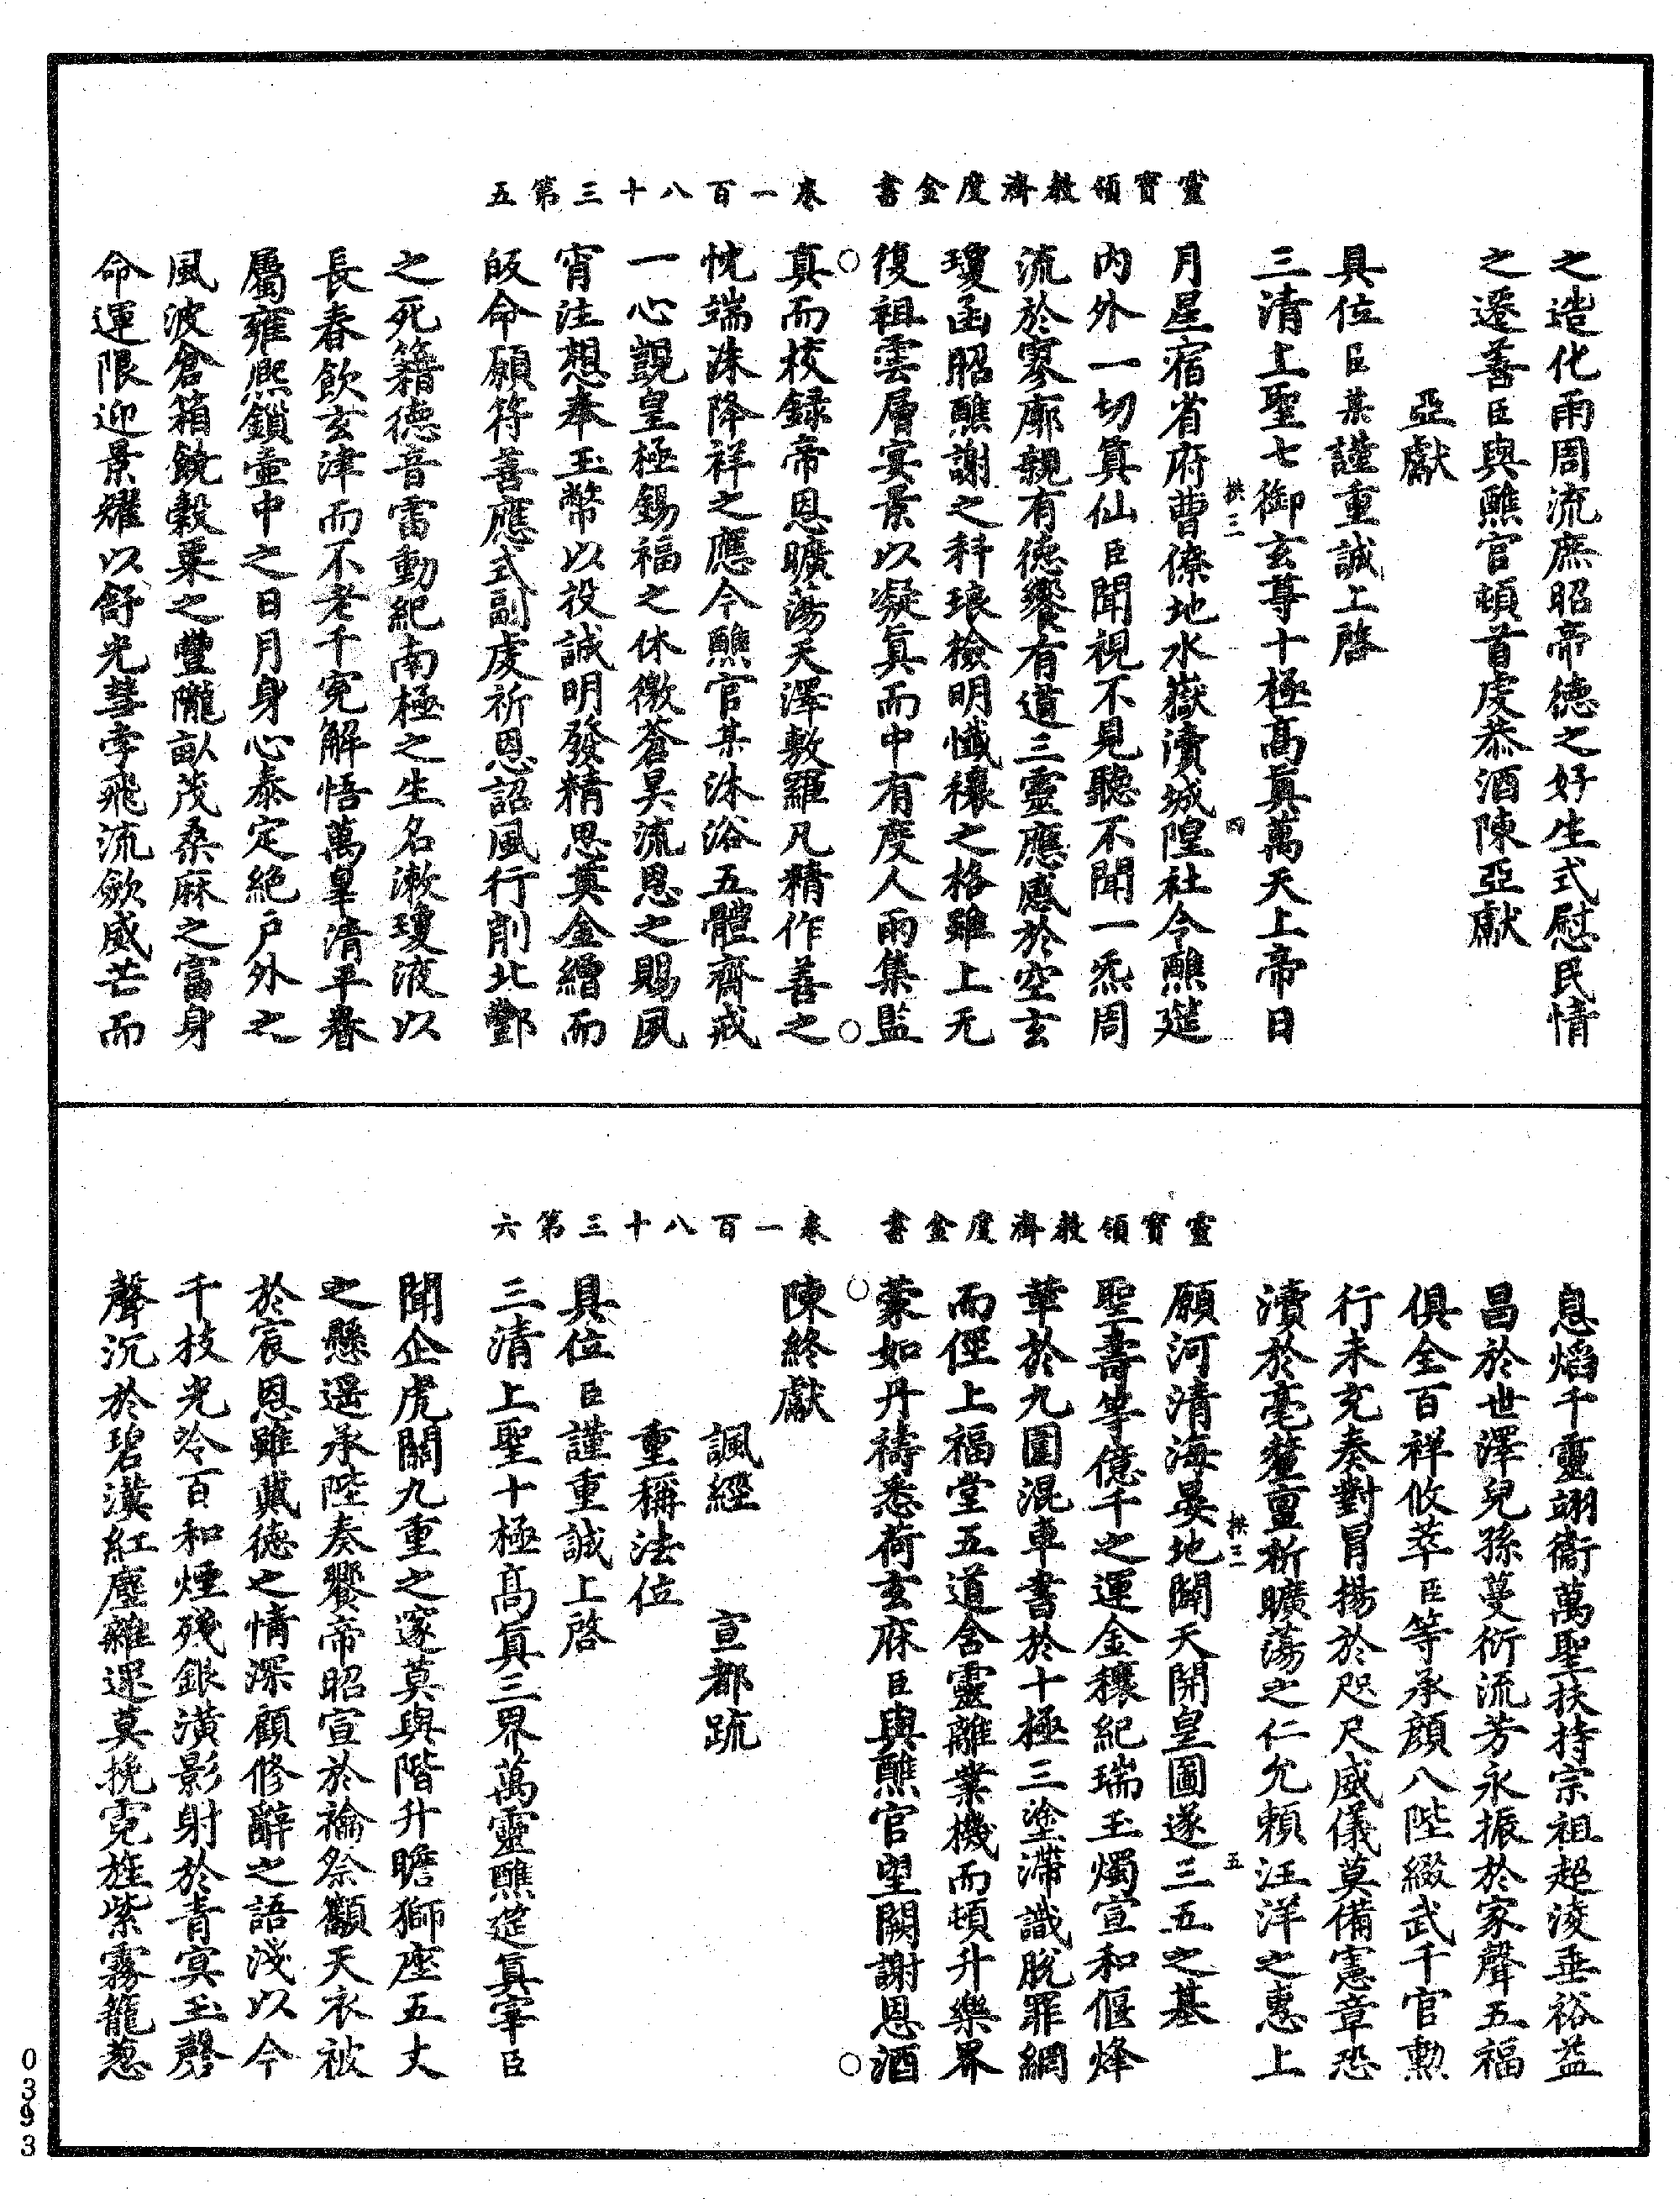 靈寶領教濟度金書　卷一百八十三第五
之造化雨周流庶昭帝德之好生式慰民情
之遷善臣與醮官頓首虔恭酒陳亞獻
亞獻
具位臣某謹重誠上啓
三清上聖七御玄尊十極髙眞萬天上帝日
月星宿省府曹僚地水嶽瀆城隍社令醮筵
内外一切真仙臣聞視不見聽不聞一炁周
流於寥廓親有德饗有道三靈應感於空玄
瓊函昭醮謝之科琅檢明懺禳之格雖上无
復祖雲層宴景以凝眞而中有度人雨集監
真而校録帝恩曠蕩天澤敷羅凡精作善之
忱端洙降祥之應今醮官某洙浴五體齋戒
一心覬皇極錫福之休徼蒼昊流恩之賜夙
宵注想奉玉幣以投誠明發精思奠金繒而
皈命願符善應式副虔祈恩詔風行削北酆
之死籍德音雷動紀南極之生名漱瓊液以
長春飲玄津而不老千寃解悟萬辠清平眷
屬雍熙鎖壷中之日月身心泰定絶户外之
風波倉箱餽穀粟之豐隴畝茂桑麻之富身
命運限迎景耀以舒光彗孛飛流斂威芒而
珙三
四
靈寶領教濟度金書　卷一百八十三第六
息焰千靈翊衞萬聖扶持宗祖超淩垂裕益
昌於世澤兒孫蔓衍流芳永振於家聲五福
俱全百祥攸萃臣等承顔八陛綴武千官勲
行未充奏對冒揚於咫尺威儀莫備憲章恐
瀆於毫釐亶祈曠蕩之仁允頼汪洋之惠上
願河清海晏地闢天開皇圖遂三五之基
聖壽等億千之運金穰紀瑞玉燭宣和偃烽
華於九圍混車書於十極三塗滯識脫罪網
而俓上福堂五道含靈離業機而頓升樂界
蒙如丹禱悉荷玄庥臣與醮官望闕謝恩酒
陳終獻
諷經　宣都疏
重稱法位
具位臣謹重誠上啓
三清上聖十極髙眞三界萬靈醮筵眞宰臣
聞企虎闗九重之邃莫與階升瞻獅座五丈
之懸遥承陛奏饗帝昭宣於禴祭籲天衣被
於宸恩雖戴德之情深顧修辭之語淺以今
千枝光冷百和煙殘銀潢影射於青冥玉磬
聲沉於碧漢紅塵雜遝莫挽霓旌紫霧籠葱
珙三
五
0393